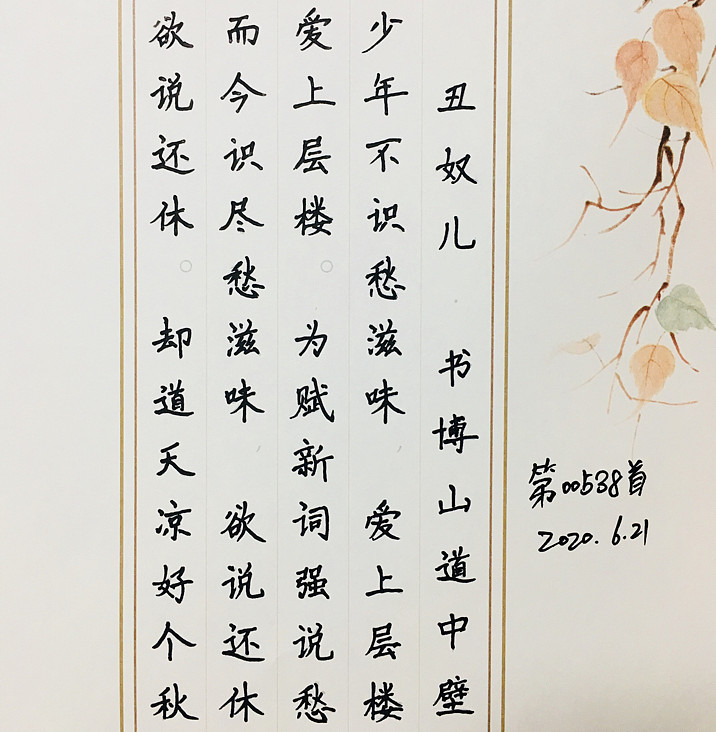 丑奴儿 书博山道中壁
少年不识愁滋味 爱上层楼
爱上层楼。为赋新词强说愁
而今识尽愁滋味 欲说还休
欲说还休。却道天凉好个秋
第00538首
2020.6.21